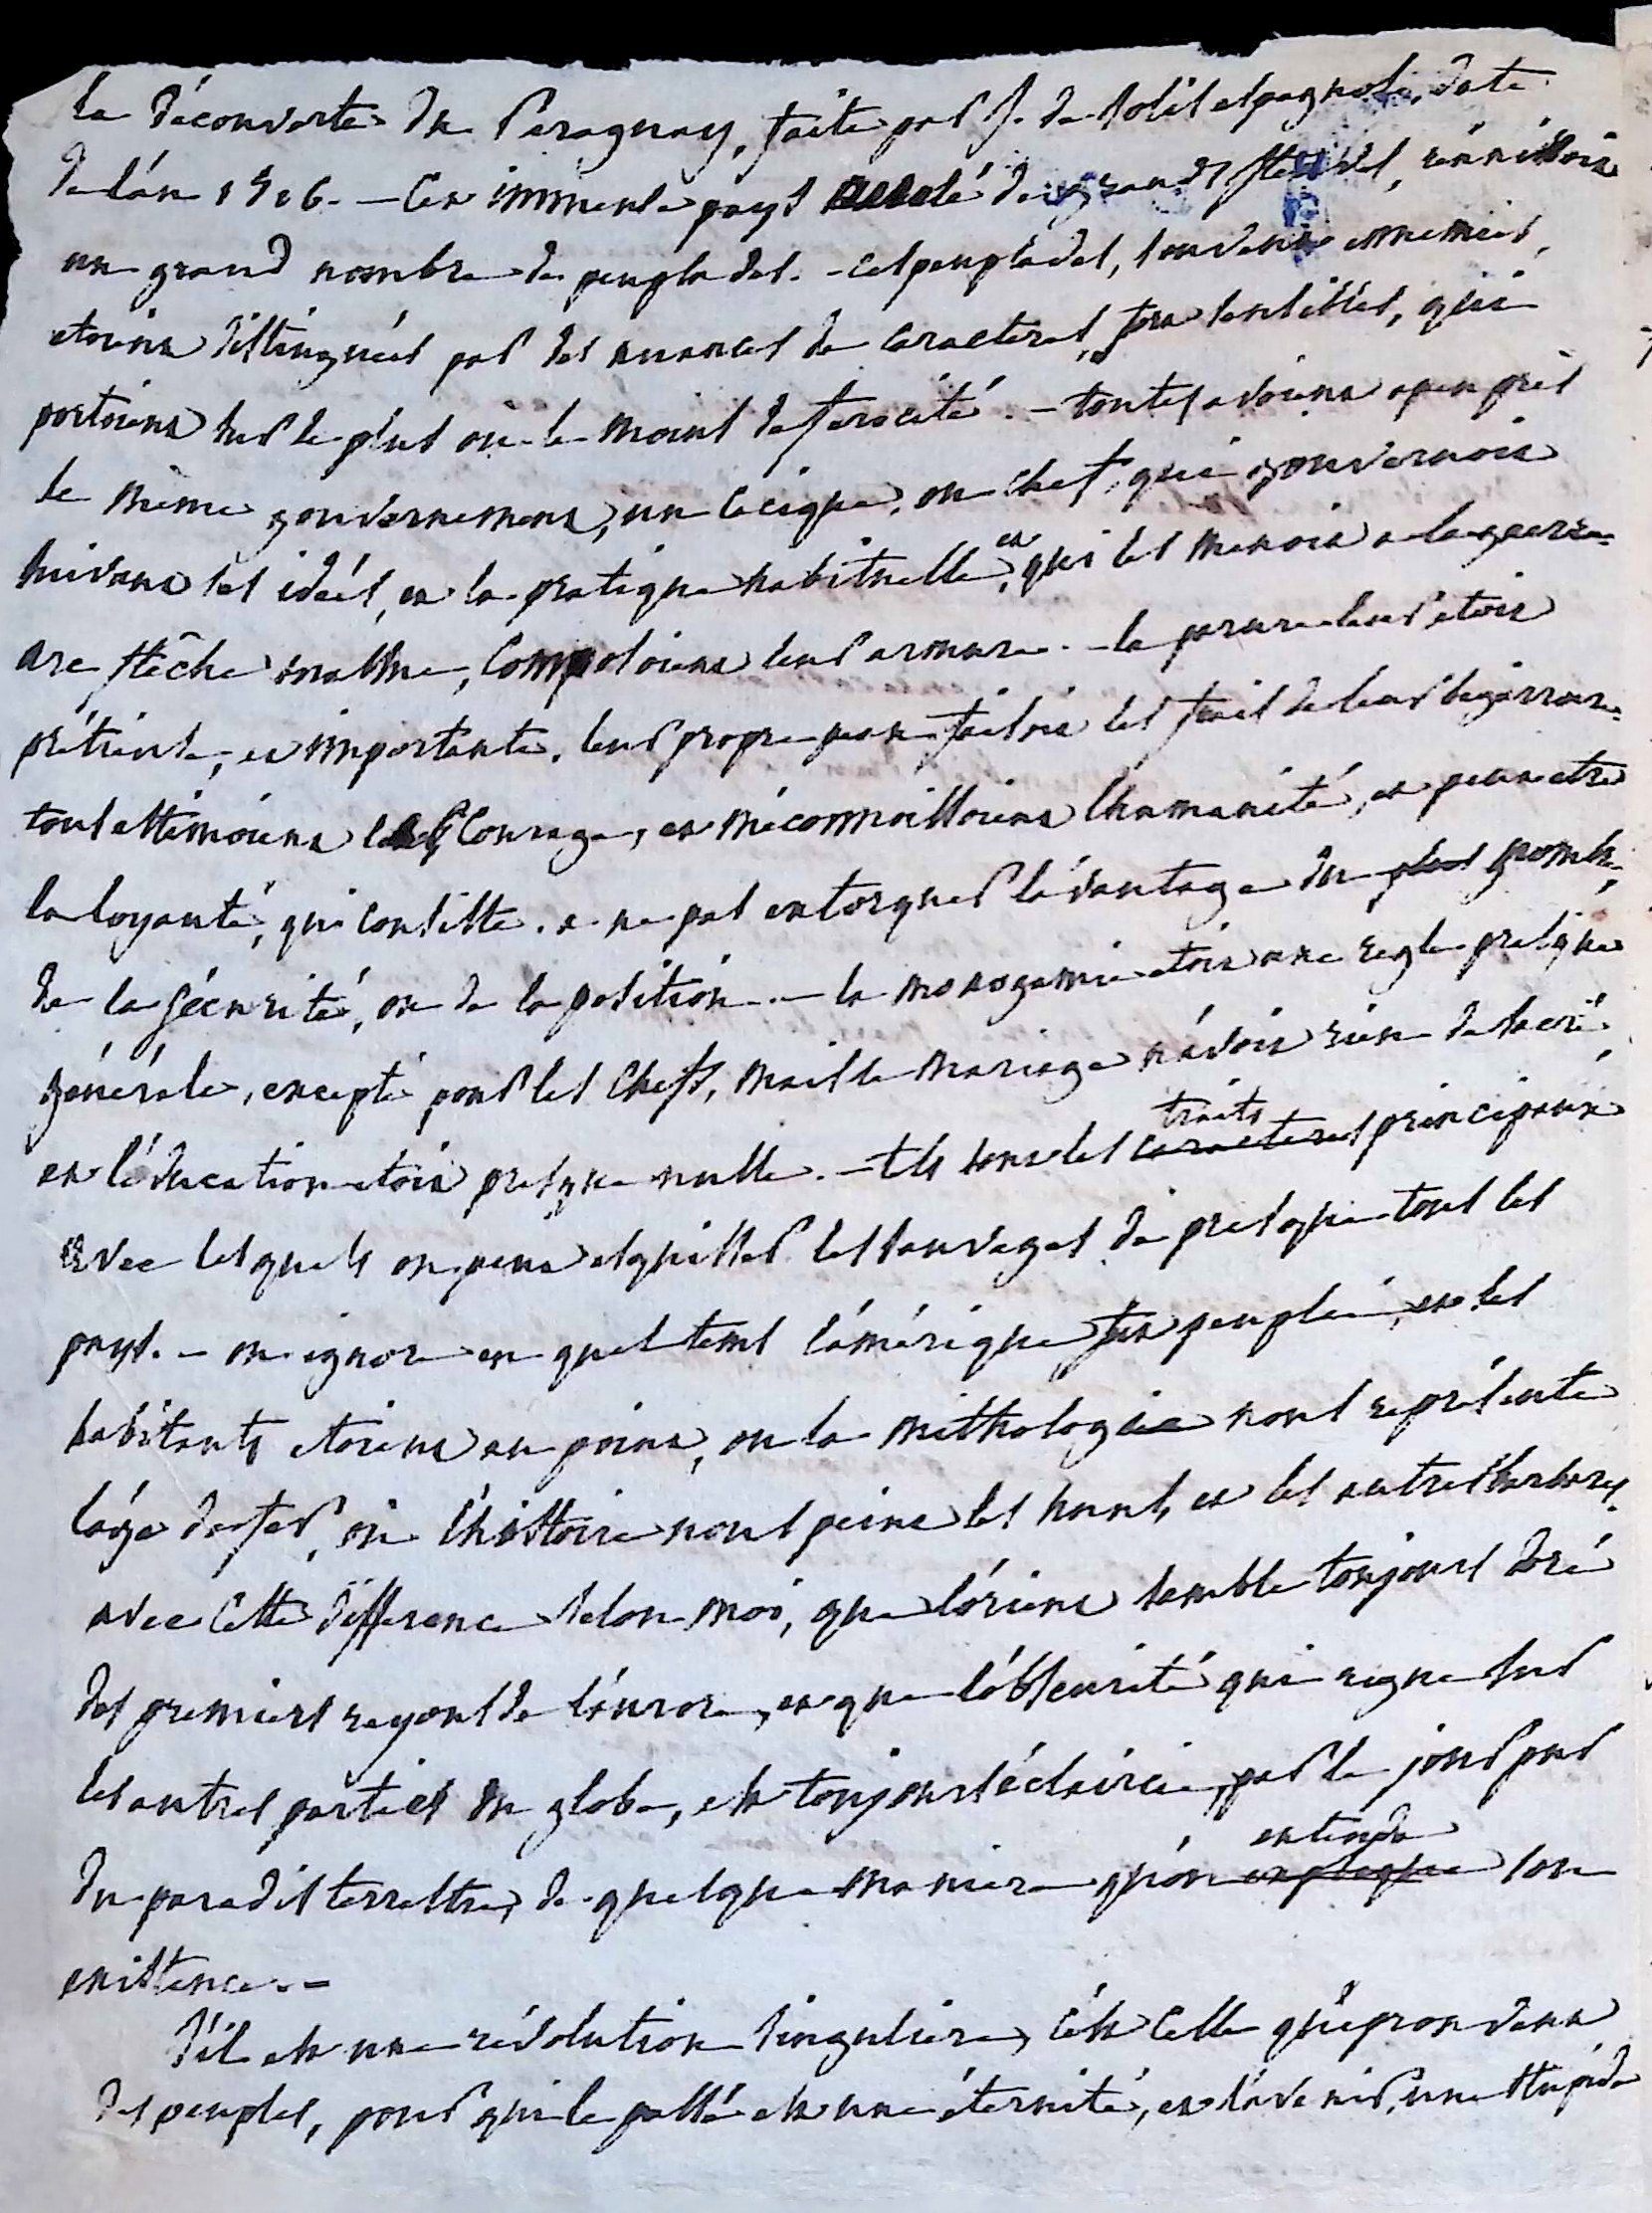 la découverte du Paraguay, faite par J. de Solis espagnol, date
de l'an 1516. — Cet immense pays de grands fleuves, réunissoit
un grand nombre de peuplades. — ces peuplades, souvent ennemies,
etoient distinguées par des nuances de caracteres, peu sensibles, qui
portoient sur le plus ou le moins de ferocité. — toutes avoient a peu près
le même gouvernement, un cacique, ou chef, qui gouvernoit
suivant les idées, et la pratique habituelle, et qui les menoit a la guerre.
arc flêche massue, composoient leur armure. — la parure leur etoit
prétieuse, et importante, leur propre peau faisoit les frais de leur bigarrure.
tous estimoient le courage, et méconnoissoient l'humanité, et peut etre
la loyauté, qui consiste a ne pas extorquer l'avantage du plus nombre,
de la sécurité, ou de la position. — la monogamie etoit une regle presque
générale, excepté pour les chefs, mais le mariage n'avoit rien de sacré,
et l'éducation etoit presque nulle. — tels sont les caracteres traits principaux
avec lesquels on peut esquisser les sauvages de presque tous les
pays. — on ignore en quel tems l'amérique fut peuplée, et les
habitants etoient au point, ou la mithologie nous représente
l'age de fer, ou l'histoire nous peint les huns, et les autres barbares.
avec cette difference selon moi, que l'orient semble toujours doré
des premiers rayons de l'aurore, et que l'obscurité qui regne sur
les autres parties du globe, est toujours éclaircie, par le jour pur
du paradis terrestre, de quelque maniere qu'on explique entende son
existence. —
S'il est une révolution singuliere, c'est celle qu'éprouvent
des peuples, pour qui le passé est une éternité, et l'avenir, une stupide